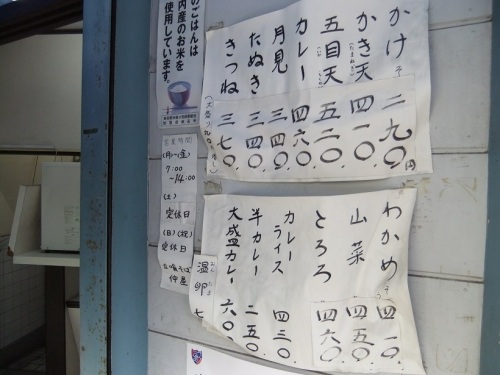 のごはんは
内産のお米を
使用しています。
かけそ 二九〇円
かき天 四一〇、
五目天 五二〇、
カレー 四六〇、
月見 三四〇、
たぬき 三四〇、
きつね 三七〇、
営業時間
(月)〜(金)
7:00
〜14:00
(土)
定休日
(日)(祝)
定休日
立喰そば
仲屋
わかめそ 四一〇、
山菜 四五〇、
とろろ 四六〇、
カレーライス 四三〇、
半カレー 二五〇、
大盛カレー 六〇〇、
温卵 七